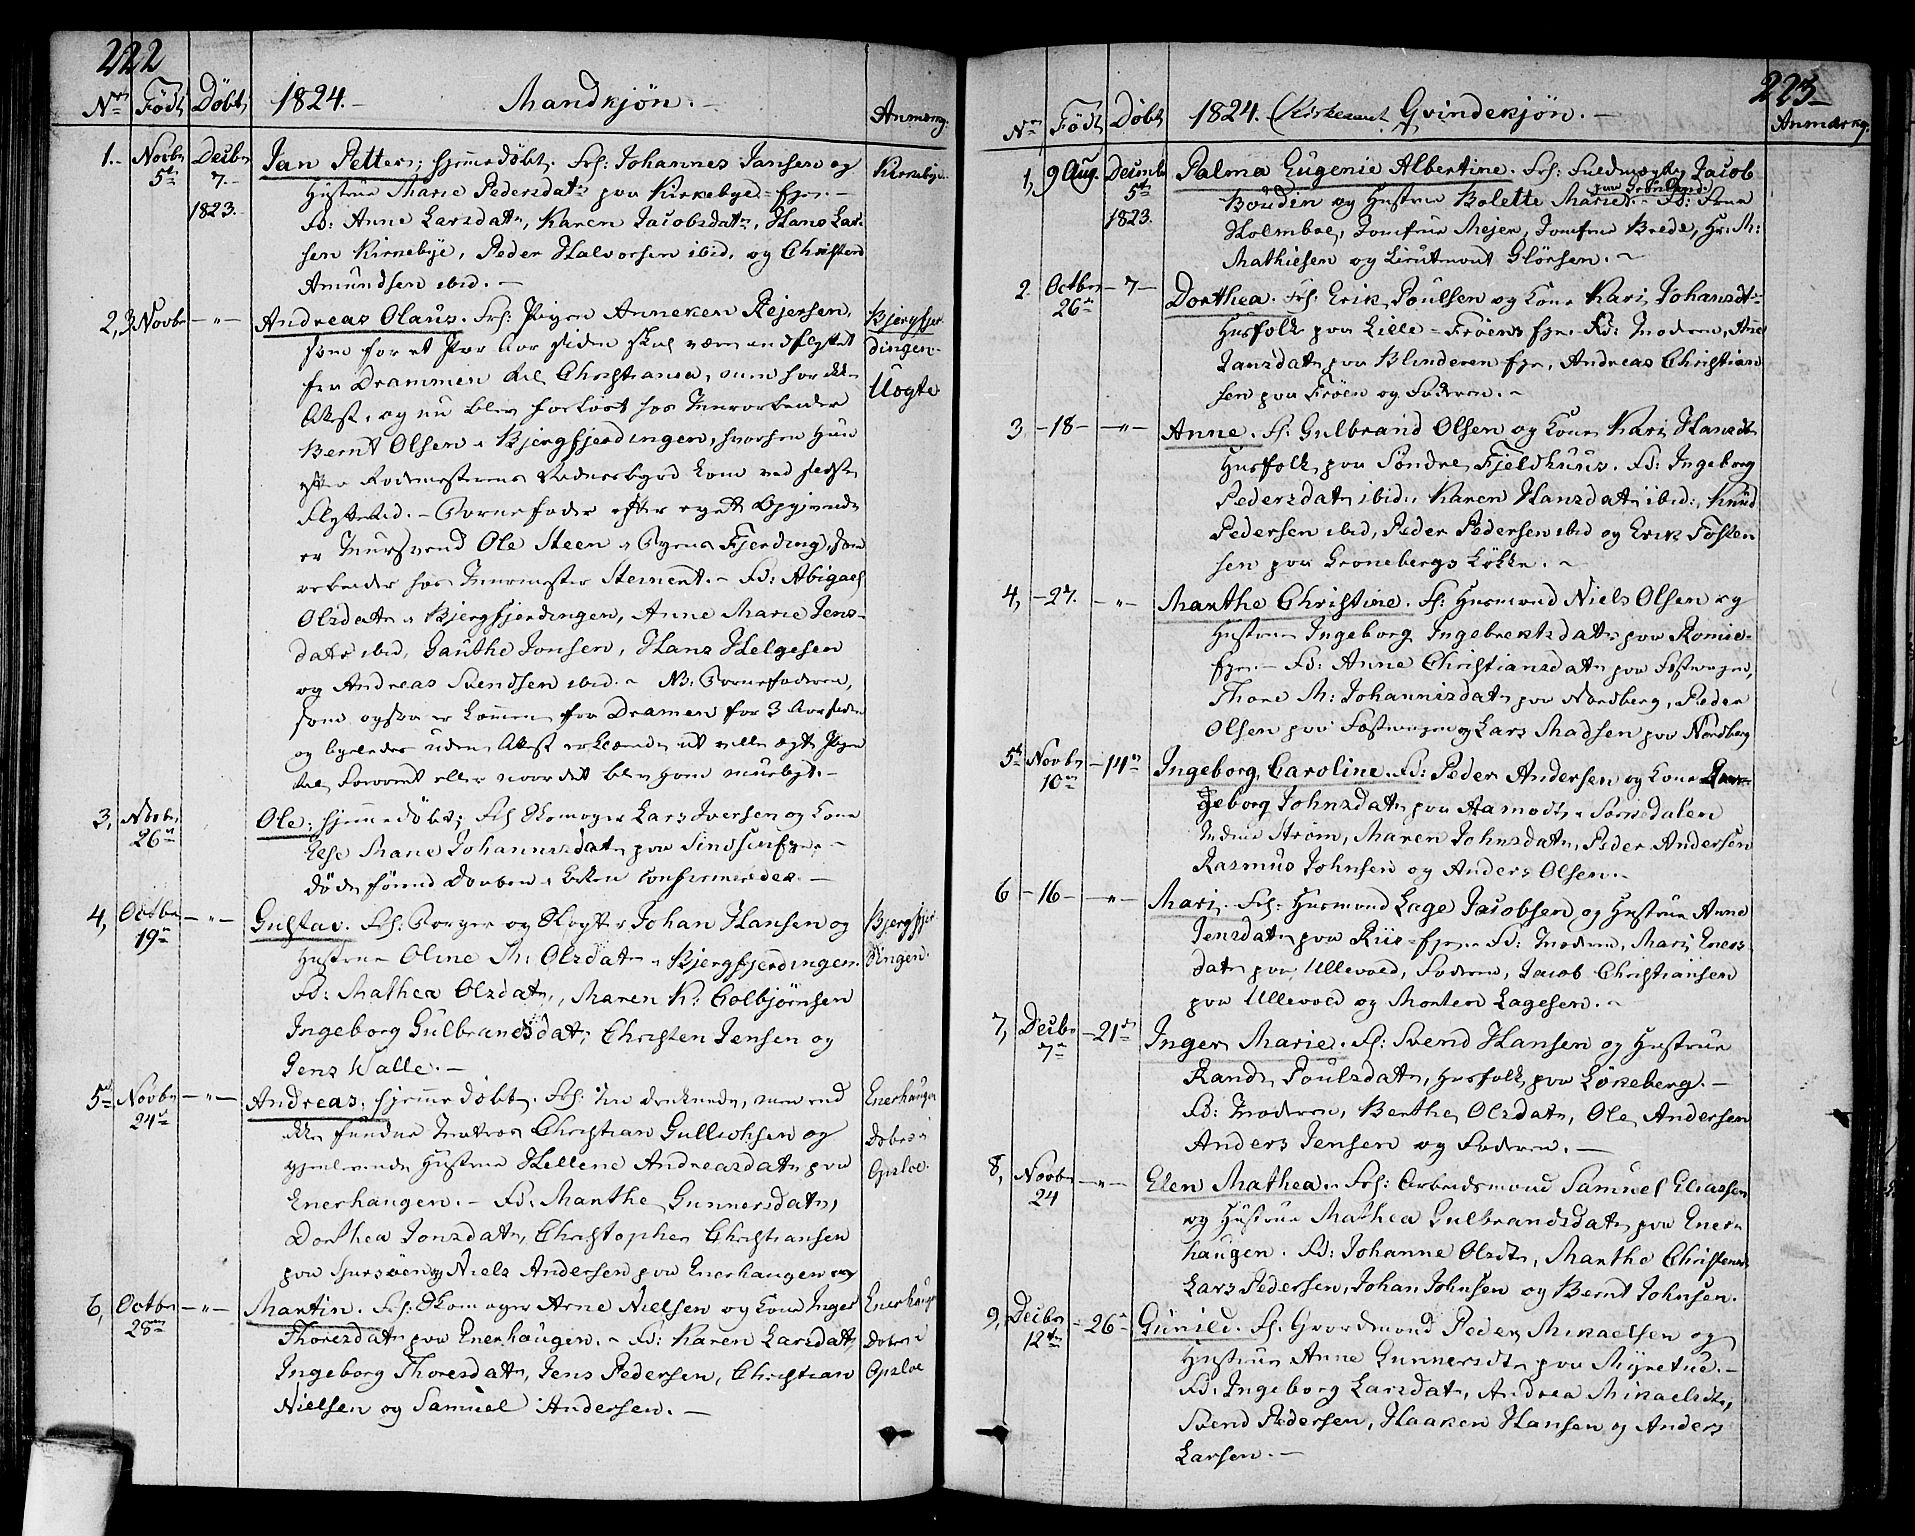 222
Nr. Födt Döbt 1824.- Mandkjön.- Anmærkg.
1. Novbr 5te Decbr 7. 1823. Jan Petter; hjemmedöbt. Frh: Johannes Jansen og Kirkebye
Hustrue Marie Pedersdatr paa Kirkebye-Eje.-
Fd: Anne Larsdatr, Karen Jacobsdatr, Hans Lar-
sen Kirkebye, Peder Halvorsen ibid, og Christen
Amundsen ibid.-
2, 3 Novbr -"- Andreas Olaus. Frh: Pigen Anneken Rejersen, Bjergfjer-
som for et Par Aar siden skal være indflyttet dingen-
fra Drammen til Christiania, men har ikke Uægte
Attest, og nu blev forløst hos Murarbeider
Bernt Olsen i Bjergfjerdingen, hvorhen hun
efter Rodemesterens Vidnesbyrd kom ved sidste
Flyttetid.- Barnefader efter eget Opgivende
er Mursvend Ole Steen i Byens Fjerding, som
arbeider hos Muurmester Steinert.- Fd: Abigael
Olsdatr i Bjergfjerdingen, Anne Marie Jens-
datr ibid, Gauthe Jonsen, Hans Helgesen
og Andreas Svendsen ibid.- NB: Barnefaderen,
som ogsaa er kommen fra Dramen for 3 Aar siden
og ligeledes uden Attest erklærede at ville ægte Pigen
til Foraaret eller naar det blev ham mueligt.-
3, Novbr 26de Ole; hjemmedöbt; Frh Skomager Lars Iversen og Kone
Else Marie Johannesdatr paa Sindsen Eje,-
döde førend Daaben i Kirken confirmeredes.-
4, Octbr 19de -"- Gustav. Frh: Borger og Skogter Johan Hansen og Bjergfjer-
Hustrue Oline M: Olsdatr i Bjergfjerdingen. dingen.
Fd: Mathea Olsdatr, Maren K: Colbjørnsen
Ingeborg Gulbrandsdatr, Christen Jensen og
Jens Walle.-
5te Novbr 24de -"- Andreas; hjemmedöbt. Frh: Den druknede, men end Enerhaugen
ikke fundne Matros Christian Gulliohsen og Döbes i
gjenlevende Hustrue Hellene Andreasdatr paa Opsloe.
Enerhaugen.- Fd: Marthe Gunnersdatr,
Dorthea Jonsdatr, Christopher Christiansen
paa Hursöen og Niels Andersen paa Enerhaugen
6, Octbr 28de -"- Martin. Frh: Skomager Arne Nielsen og Kone Inger Enerhaugen
Thoresdatr paa Enerhaugen.- Fd: Karen Larsdatr, Döbes i
Ingeborg Thoresdatr, Jens Pedersen, Christian Opsloe
Nielsen og Samuel Andersen.-
223
Nr. Födt Döbt 1824. Qvindekjön.- Anmærkg.
1, 9 Aug. Decembr 5te 1823. Palma Eugenie Albertine. Frh: Jacob
Boudin og Hustrue Bolette Marie paa Grönland.- Fd: Frue
Holmboe, Jomfrue Mejer, Jomfrue Brede, Hr: M:
Mathiesen og Lieutnant Glörsen.-
2. Octbr 26de -7- Dorthea. Frh. Erik Poulsen og Kone Kari Johansdtr
Husfolk paa Lille-Fröens Eje. Fd: Moderen, Anne
Jansdatr paa Blinderen Eje, Andreas Christian-
sen paa Fröen og Faderen.-
3. -18- -"- Anne. F: Gulbrand Olsen og Kone Kari Hansdtr
Husfolk paa Söndre Fjeldhuus. Fd: Ingeborg
Pedersdatr ibid., Karen Hansdatr ibid:, Knud
Pedersen ibid, Peder Pedersen ibid og Erik Tosten-
sen paa Gronebergs Løkke.-
4, -27. -"- Marthe Christine. F: Husmand Niels Olsen og
Hustrue Ingeborg Ingebrektsdatr paa
Eje.- Fd: Anne Christiansdatr paa Tostvangen,
Thore M: Johannesdatr paa Nordberg, Peder
Olsen paa Tostvangen og Lars Madsen paa Nordberg
5te Novbr 10de -14de Ingeborg Caroline. Fd: Peder Andersen og Kone
Ingeborg Johnsdatr paa Aamodt i Sörkedalen
Madme Ström, Maren Johnsdatr, Peder Andersen
Rasmus Johnsen og Anders Olsen.-
6 -16- -"- Mari. Frh: Husmand Lage Jacobsen og Hustrue Anne
Jensdatr paa Riis-Eje. Fd: Moderen, Mari Eners-
datr paa Ullevold, Faderen, Jacob Christiansen
paa Ullevold og Morten Lagesen.-
7, Decbr 7de -21de Inger Marie. F: Svend Hansen og Hustrue
Randi Poulsdatr, Husfolk paa Lökeberg.-
Fd: Moderen, Berthe Olsdatr, Ole Andersen
Anders Jensen og Faderen.-
8, Novbr 24 -"- Elen Mathea. Frh: Arbeidsmand Samuel Eliassen
og Hustrue Mathea Gulbrandsdatr paa Ener-
haugen. Fd: Johanne Olsdtr, Marthe Christens,
Lars Pedersen, Johan Johnsen og Bernt Johnsen.
9, Decbr 12te -26de Gunild. F. Gaardmand Peder Mikaelsen og
Hustrue Anne Gunnersdtr paa Myretue.-
Fd: Ingeborg Larsdatr, Andrea Mikaelsdtr,
Svend Pedersen, Haaken Hansen og Anders
Larsen.-